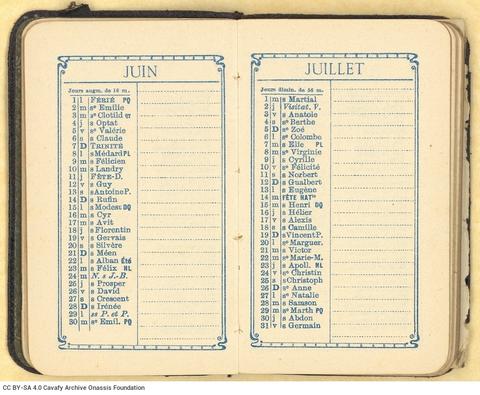 JUIN
Jours augm. de 16 m.
1 l FÉRIÉ PQ
2 m sᵉ Emilie
3 m sᵉ Clotild QT
4 j s Optat
5 v sᵉ Valérie
6 s s Claude
7 D TRINITÉ
8 l s Médard PL
9 m s Félicien
10 m s Landry
11 j FÊTE-D.
12 v s Guy
13 s s Antoine P.
14 D s Rufin
15 l s Modest DQ
16 m s Cyr
17 m s Avit
18 j s Florentin
19 v s Gervais
20 s s Silvère
21 D s Méen
22 l s Alban Été
23 m s Félix NL
24 m N. s J.-B.
25 j s Prosper
26 v s David
27 s s Crescent
28 D s Irénée
29 l ss P. et P.
30 m sᵉ Emil. PQ
JUILLET
Jours dimin. de 56 m.
1 m s Martial
2 j Visitat. V.
3 v s Anatole
4 s sᵉ Berthe
5 D sᵉ Zoé
6 l sᵉ Colombe
7 m s Elie PL
8 m sᵉ Virginie
9 j s Cyrille
10 v sᵉ Félicité
11 s s Norbert
12 D s Gualbert
13 l s Eugène
14 m FÊTE NATˡᵉ
15 m s Henri DQ
16 j s Hélier
17 v s Alexis
18 s s Camille
19 D s Vincent P.
20 l sᵉ Marguer.
21 m s Victor
22 m sᵉ Marie-M.
23 j s Apoll. NL
24 v sᵉ Christin
25 s s Christoph
26 D sᵉ Anne
27 l sᵉ Natalie
28 m s Samson
29 m sᵉ Marth PQ
30 j s Abdon
31 v s Germain
CC BY-SA 4.0 Cavafy Archive Onassis Foundation